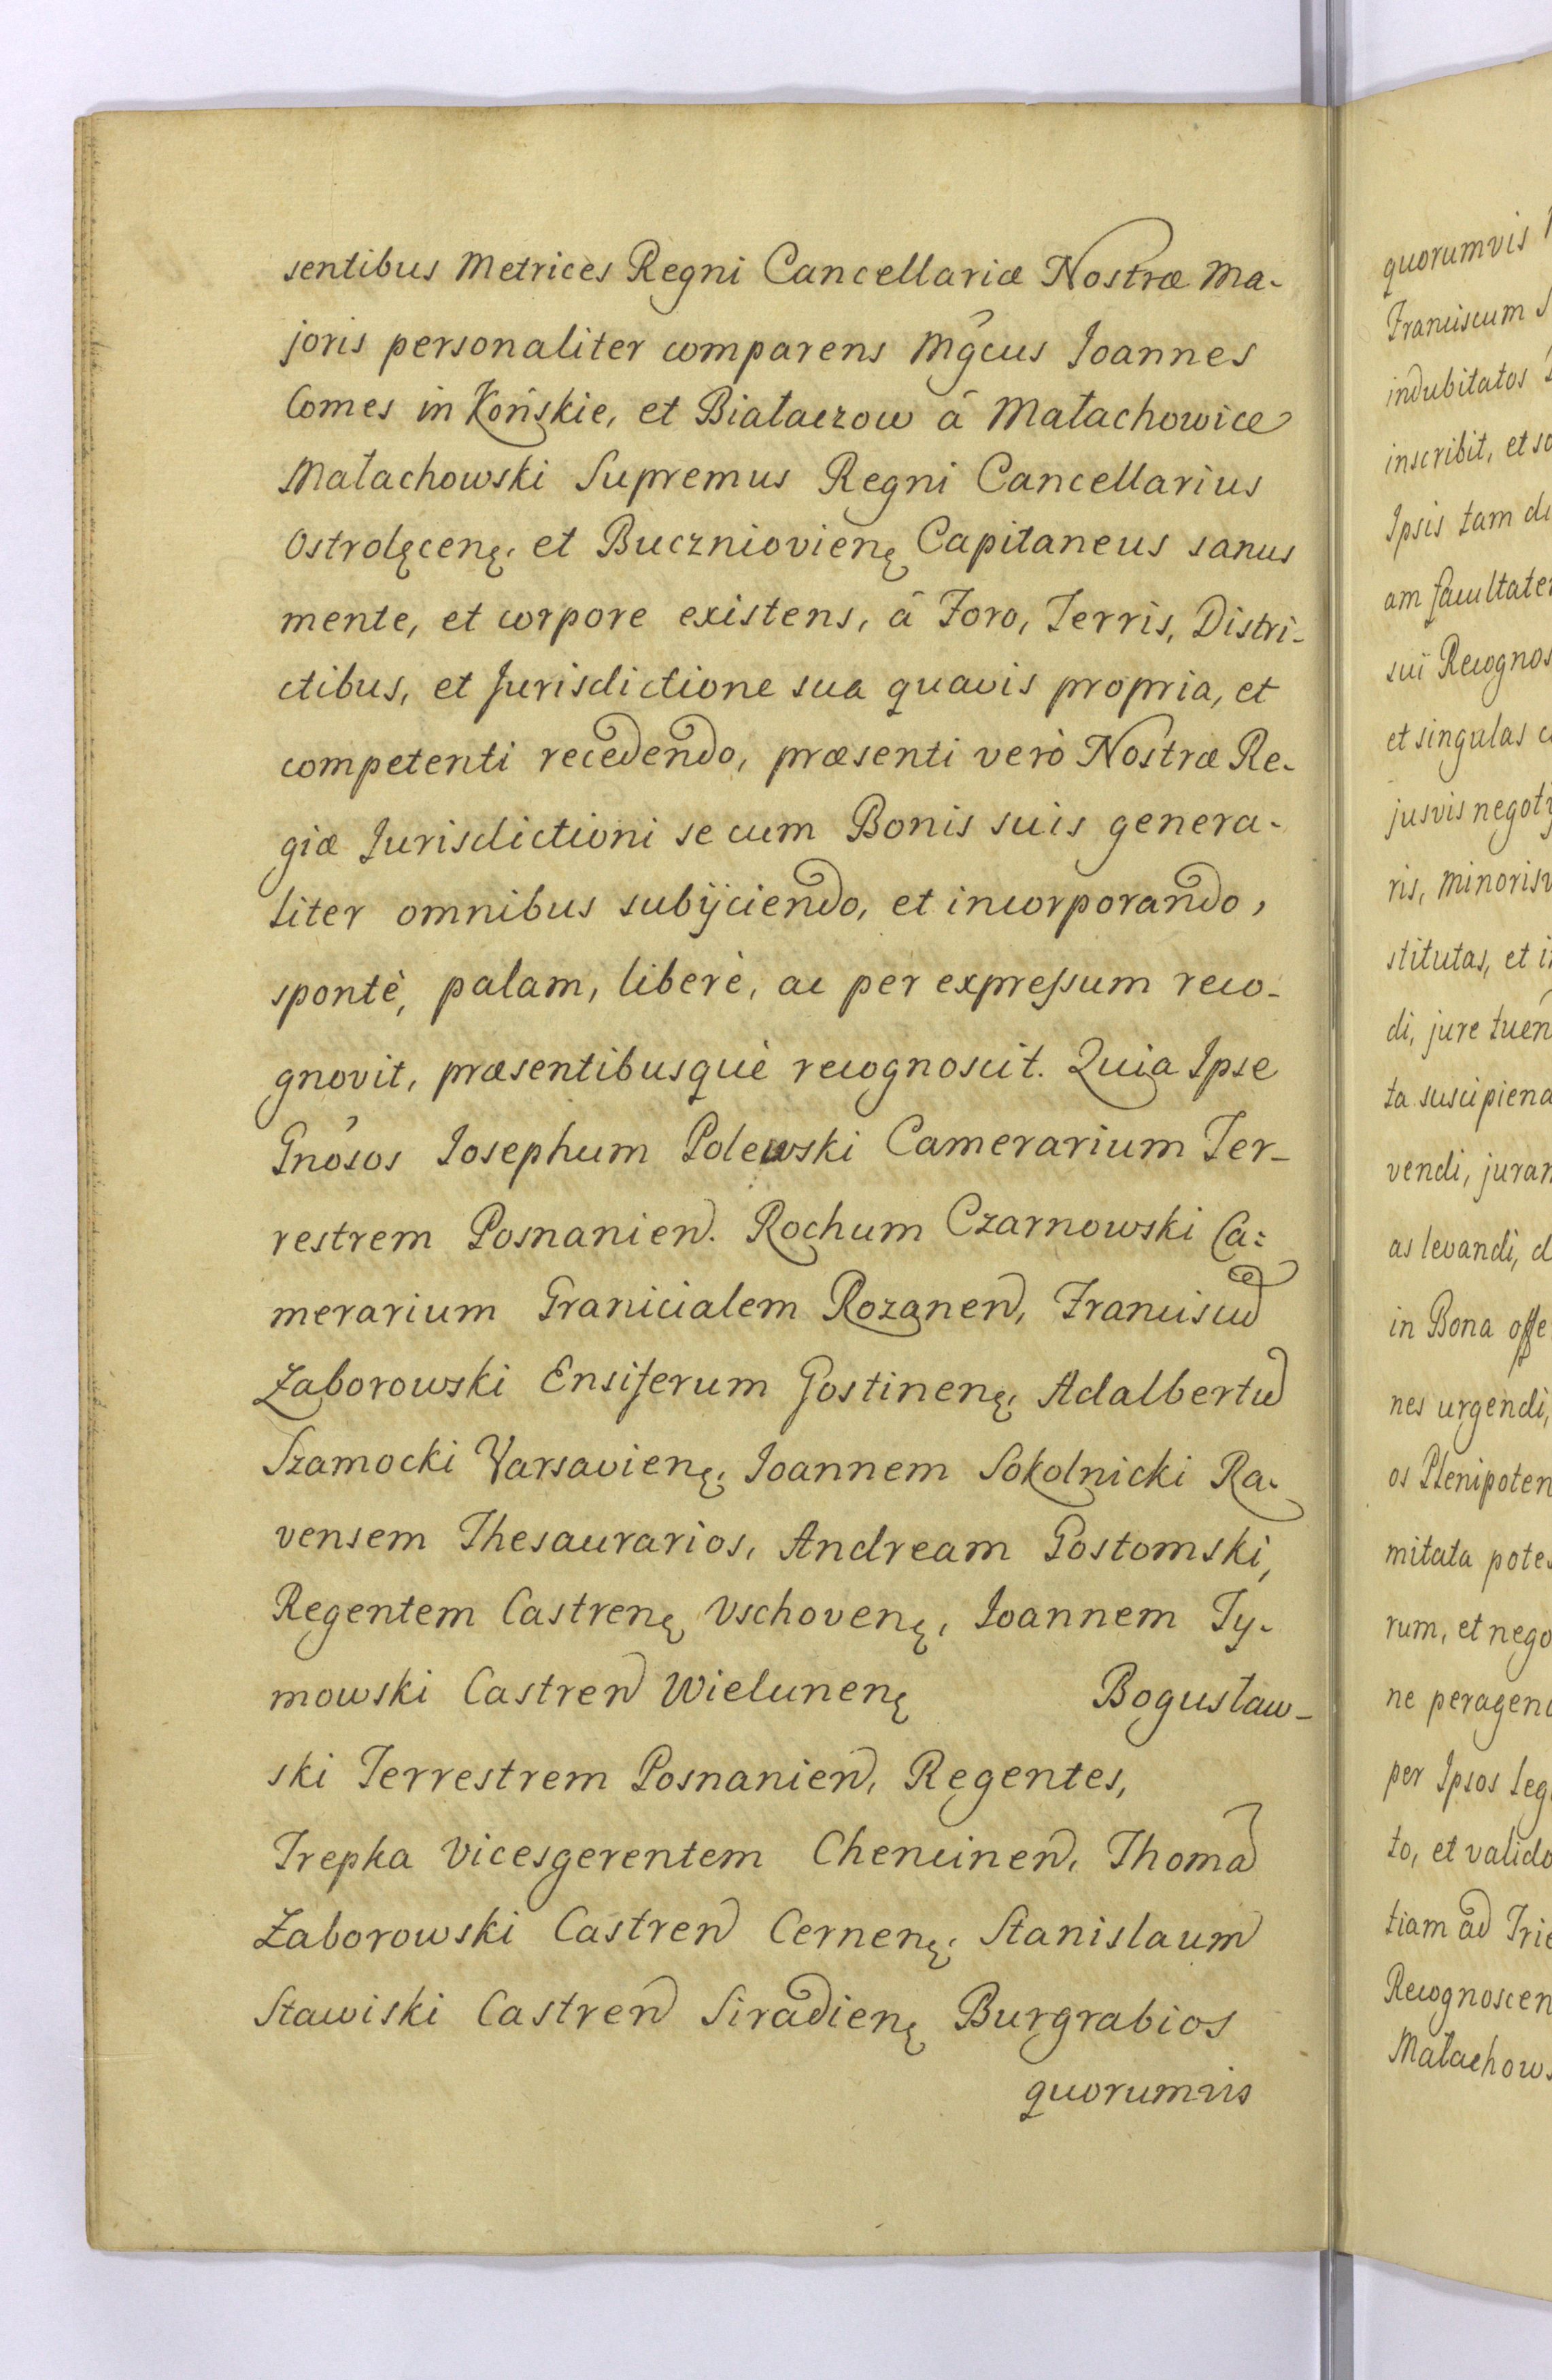 sentibus Metrices Regni Cancellariæ Nostræ Ma-
joris personaliter comparens Mg̃cus Joannes
Comes in Końskie, et Białaczow â Małachowice
Małachowski Supremus Regni Cancellarius
Ostrolęcenę, et Buczniovienę Capitaneus sanus
mente, et corpore existens, â Foro, Terris, Distri-
ctibus, et Jurisdictione sua quavis propria, et
competenti recedendo, præsenti verò Nostræ Re-
giæ Jurisdictioni se cum Bonis suis genera-
liter omnibus subijciendo, et incorporando,
spontè, palam, liberè, ac per expressum reco-
gnovit, præsentibusquè recognoscit. Quia Ipse
Gnósos Josephum Polewski Camerarium Ter-
restrem Posnanien. Rochum Czarnowski Ca:
merarium Granicialem Rozanen, Franciscu
Zaborowski Ensiferum Gostinenę, Adalbertu
Szamocki Varsavienę, Joannem Sokolnicki Ra-
vensem Thesaurarios, Andream Gostomski,
Regentem Castrenę Vschovenę, Joannem Ty-
mowski Castren Wielunenę Bogusław-
ski Terrestrem Posnanien, Regentes,
Trepka Vicesgerentem Chencinen, Thoma
Zaborowski Castren Cernenę, Stanislaum
Stawiski Castren Siradienę Burgrabios
quorumvis
quorumvis
Franciscum S
indubitatos
inscribit, et so
Ipsis tam di
am facultate
sui Recognos
et singulas c
jusvis negotÿ
ris, minorisv
stitutas, et i
di, jure tuen
ta suscipiend
vendi, juran
as levandi, d
in Bona offe
nes urgendi,
os Plenipoten
mitata potes
rum, et nego
ne peragend
per Ipsos leg
to, et valido
tiam ad Trie
Recognoscen
Małachows